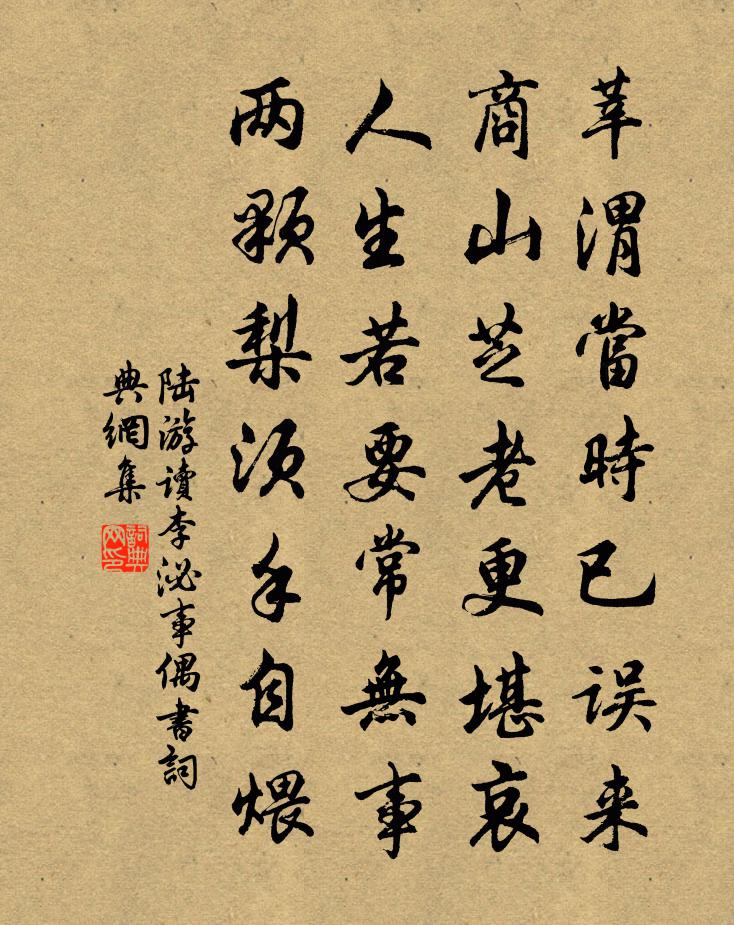 莘渭當時已误来
商山芝老更堪哀
人生若要常無事
两颗梨须手自煨
陆游讀李泌事偶書詞
典網集
詞典
网印